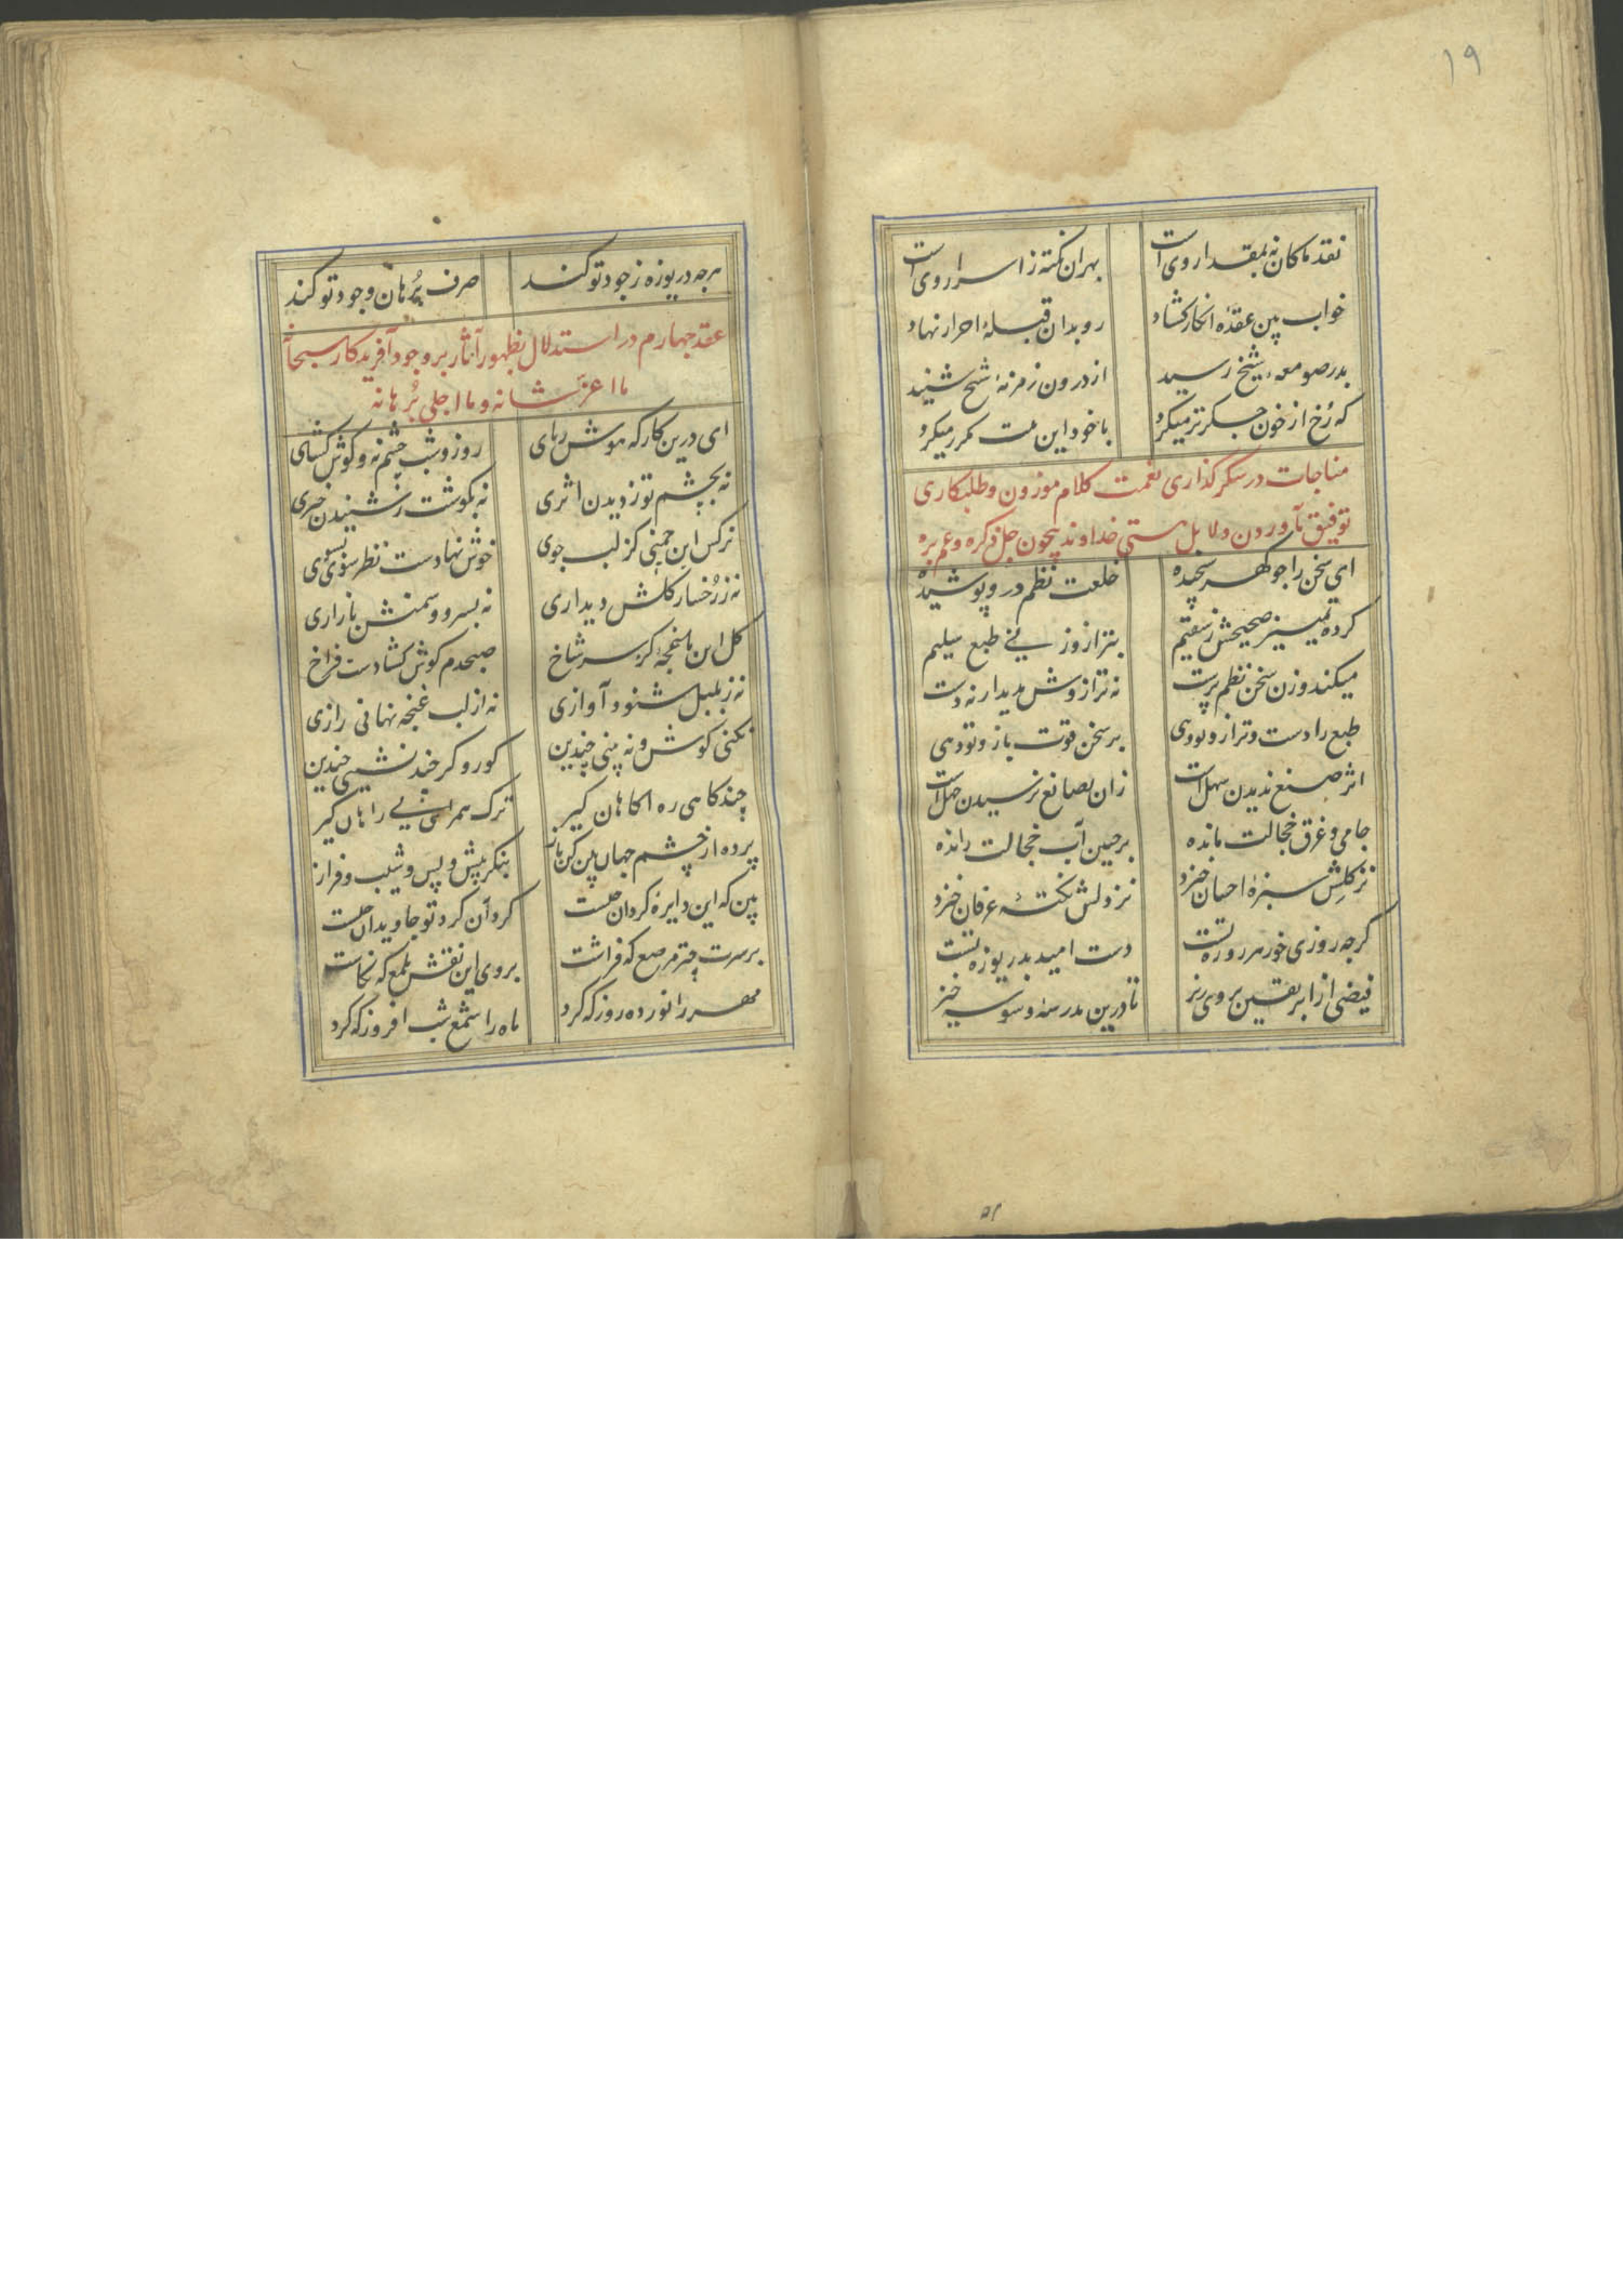 ۱۹
نقد ما کان نه بمقدار وی است بهر ان نکته ز اسرار وی است
خواب بین عقدهٔ انکار کشاد رو بدان قبلهٔ احرار نهاد
بدر صومعهٔ شیخ رسید از درون زمزمهٔ شیخ شنید
که رخ از خون جگر تر میکرد با خود این بیت مکرر میکرد
مناجات در شکر کذاری نعمت کلام موزون و طلبکاری
توفیق بآوردن دلایل هستی خداوند بیچون جل ذکره و عم بره
ای سخن را چو کهر سنجیده خلعت نظم درو پوشیده
کرده تمییز صحیحش ز سقیم بترازوزنی طبع سلیم
میکند وزن سخن نظم پرست نه ترازوش پدیدار نه دست
طبع را دست و ترازو تو دهی بر سخن قوت بازو تو دهی
اثر صنع ندیدن سهل است زان بصانع نرسیدن جهل است
جامی و غرق خجالت مانده بر جبین آب خجالت رانده
نز کلش سبزهٔ احسان خیزد نز دلش نکتهٔ عرفان خیزد
کرچه روزی خور هر روزه تست دست امید بدریوزه تست
فیضی از ابر یقین بر وی ریز تا درین مدرسهٔ وسوسه خیز
هرچه دریوزه ز جود تو کند صرف برهان وجود تو کند
عقد چهارم در استدلال بظهور آثار بر وجود آفریدکار سبحانه
ما اعز شانه و ما اجلی برهانه
ای درین کارکه هوش ربای روز و شب چشم نه و کوش کشای
نه بچشم تو ز دیدن اثری نه بکوشت ز شنیدن خبری
نرکس این چمنی کز لب جوی خوش نهادست نظر سوی بسوی
نه ز رخسار کلش دیداری نه بسرو و سمنش بازاری
کل این باغچه کز سر شاخ صبحدم کوش کشادست فراخ
نه ز بلبل شنود آوازی نه از لب غنچه نهانی رازی
نکنی کوش و نه بینی چندین کور و کر چند نشینی چندین
چندکاهی ره آکاهان کیر ترک همراهی بی راهان کیر
پرده از چشم جهان بین کن باز بنکر پیش و پس و شیب و فراز
بین که این دایره کردان چیست کرد آن کرد تو جاویدان چیست
بر سرت چتر مرصع که فراشت بر وی این نقش ملمع که نکاشت
مهر را نور ده روز که کرد ماه را شمع شب افروز که کرد